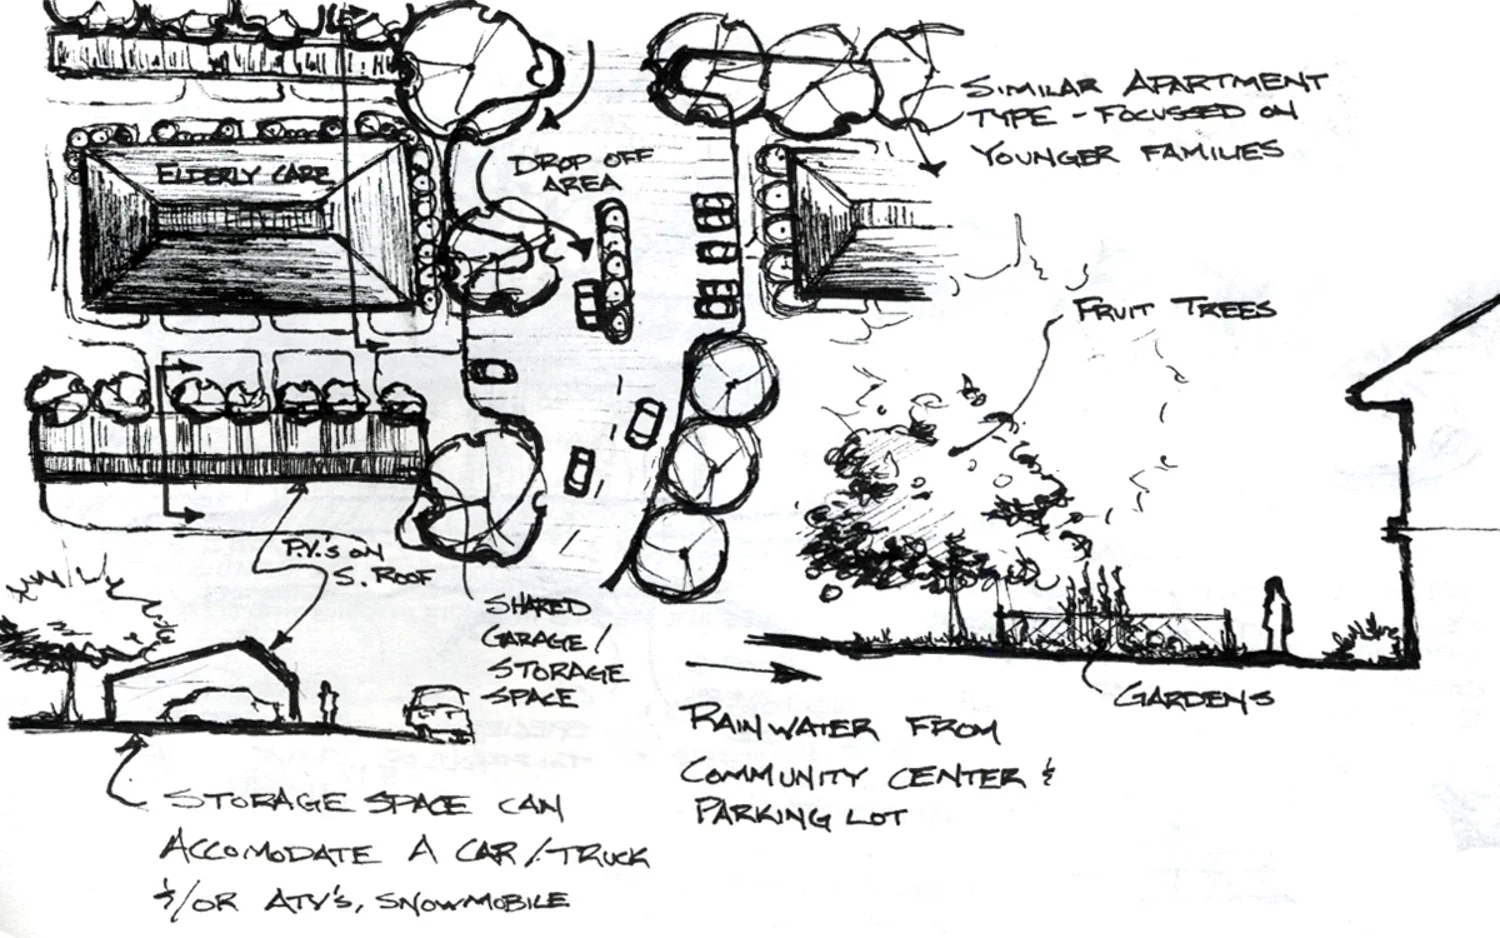 SIMILAR APARTMENT
TYPE - FOCUSSED ON
YOUNGER FAMILIES
ELDERLY CARE
DROP OFF
AREA
FRUIT TREES
P.V.'S ON
S. ROOF
SHARED
GARAGE/
STORAGE
SPACE
GARDENS
RAINWATER FROM
COMMUNITY CENTER &
PARKING LOT
STORAGE SPACE CAN
ACCOMODATE A CAR/TRUCK
&/OR ATV'S, SNOWMOBILE